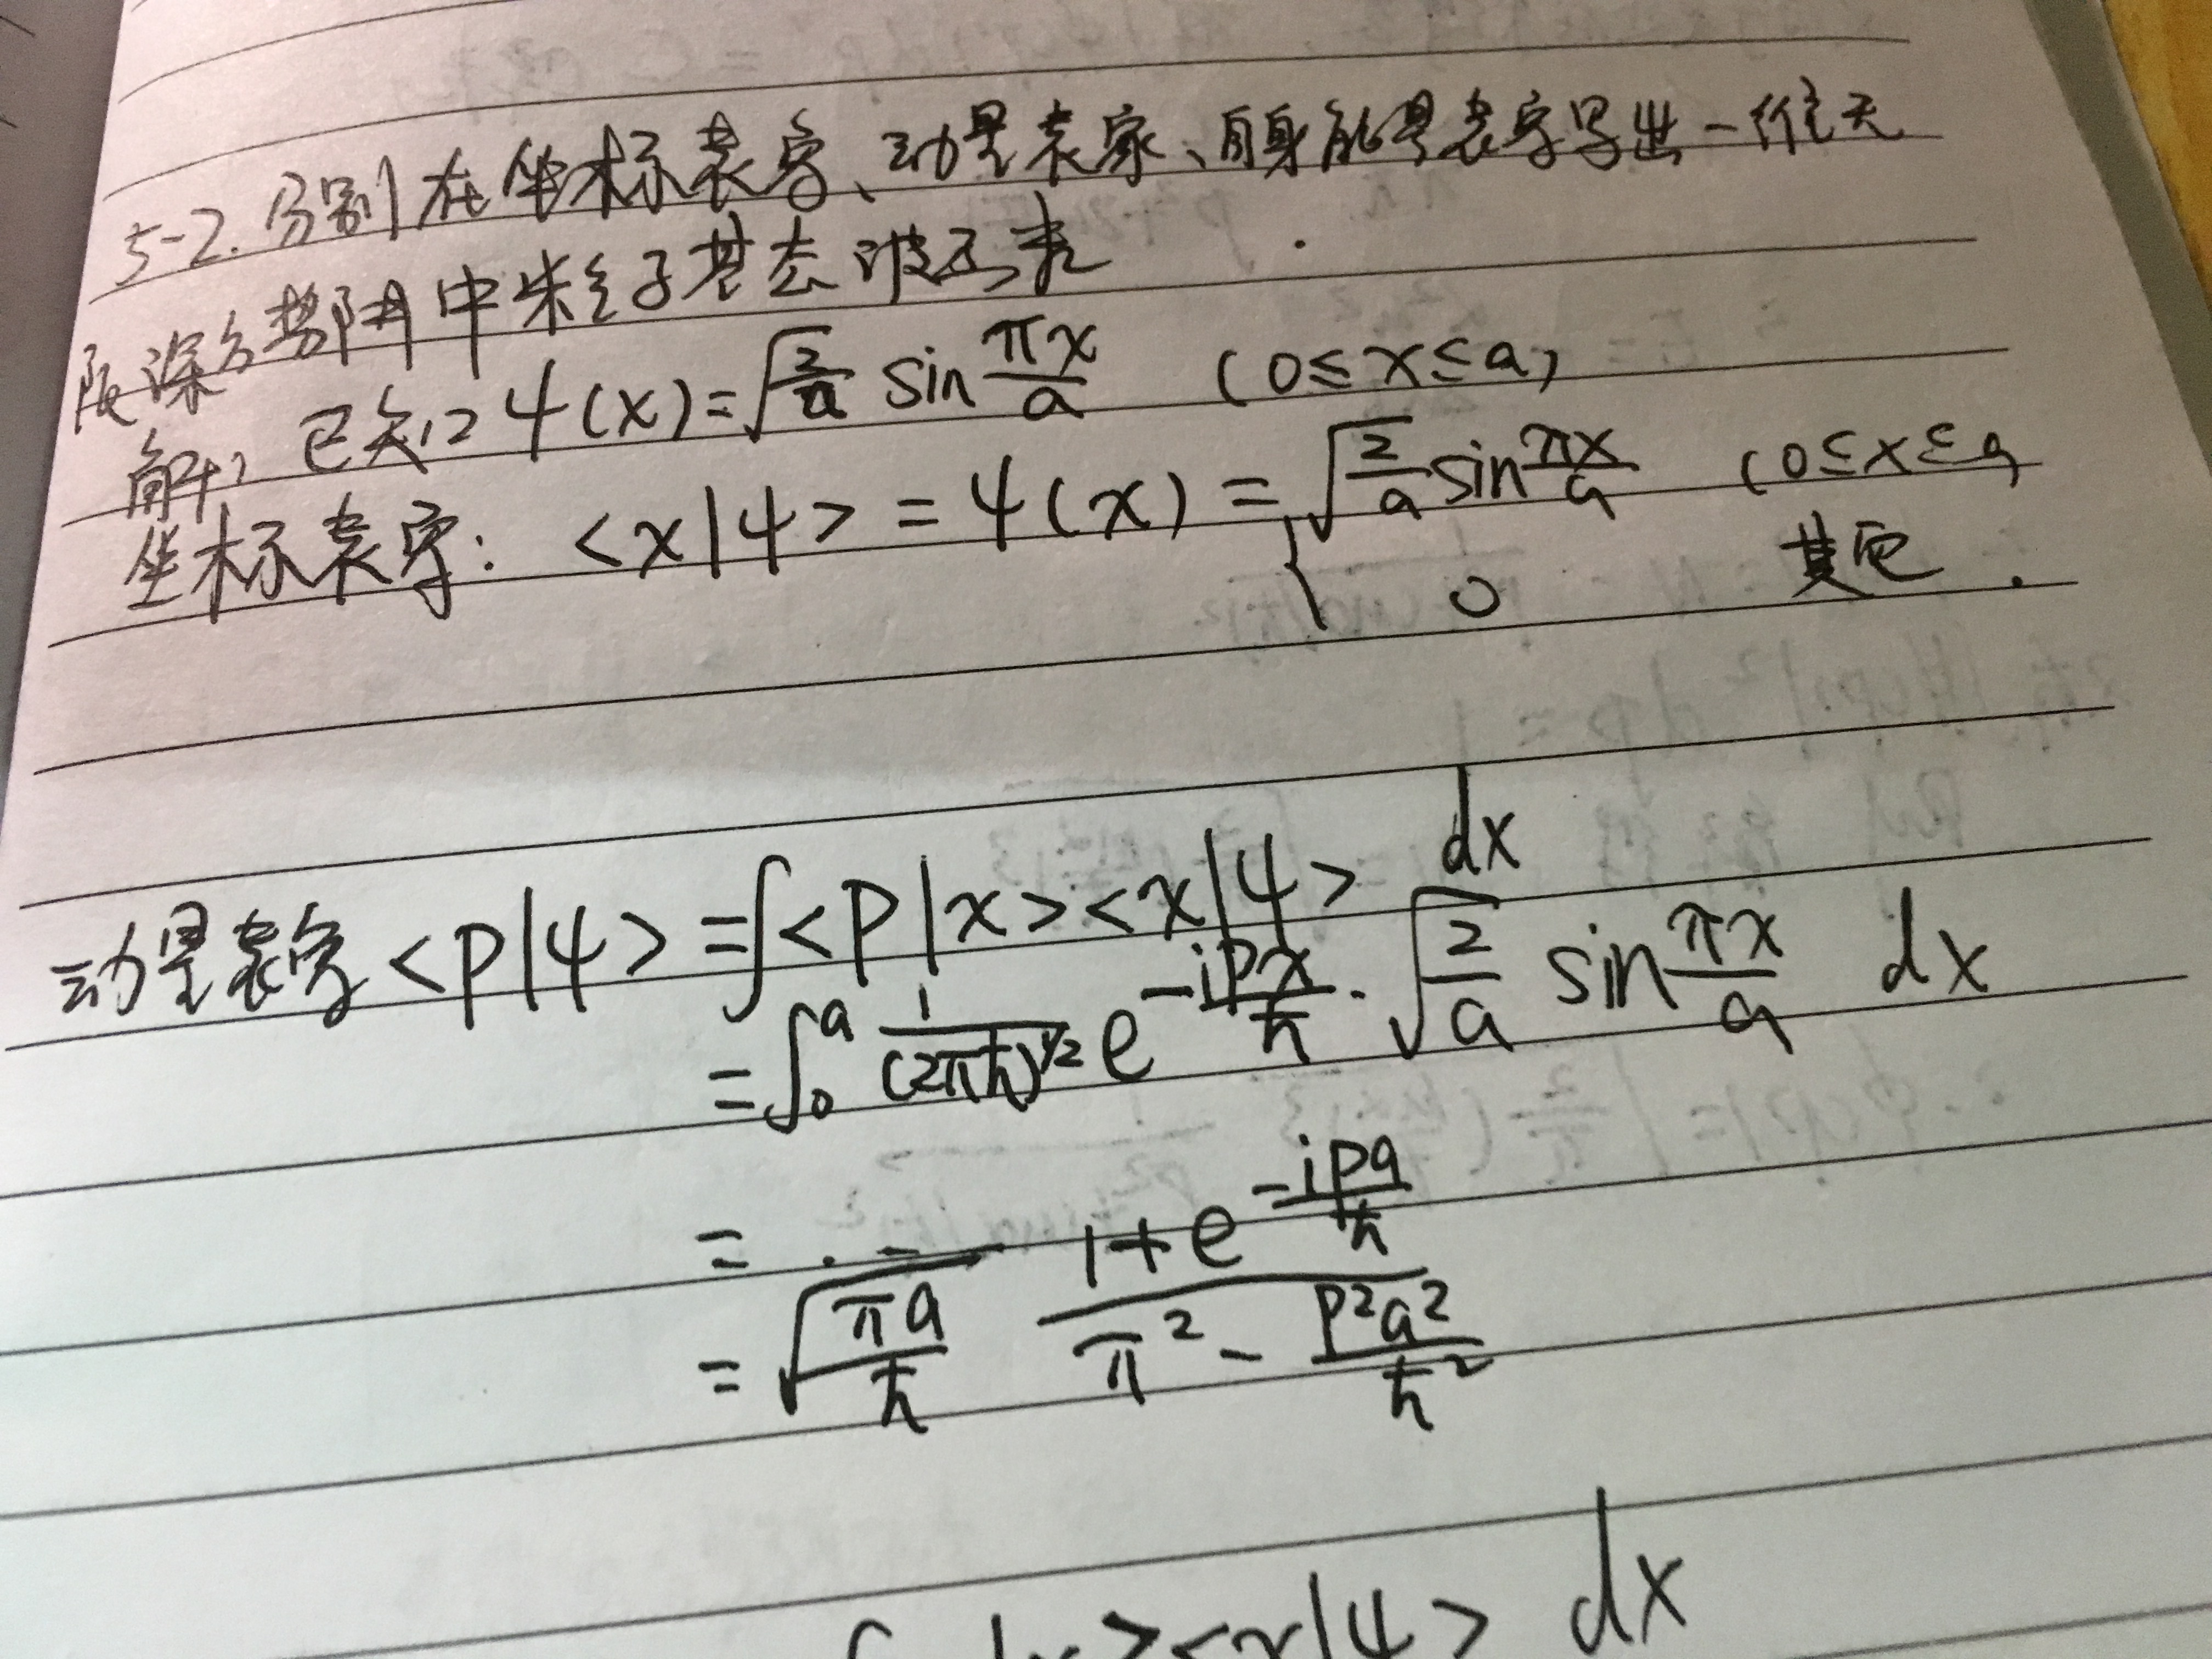 5-2. 分别在坐标表象、动量表象、自身能量表象写出一维无
限深方势阱中粒子基态波函数
解: 已知 ψ(x)=√(2/a) sin πx/a (0≤x≤a)
坐标表象: <x|ψ> = ψ(x) = { √(2/a) sin πx/a (0≤x≤a
0 其它.
动量表象 <p|ψ> = ∫<p|x><x|ψ> dx
= ∫₀ᵃ 1/(2πħ)^1/2 e^(-ipx/ħ) · √(2/a) sin πx/a dx
= ...
= √(πa/ħ) (1+e^(-ipa/ħ))/(π² - p²a²/ħ²)
x><x|ψ> dx